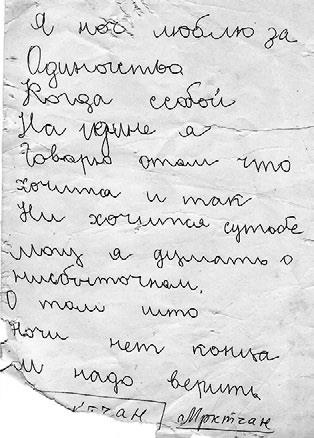 Я ноч люблю за
Одиночства
Когда ссобой
На идине я
Говорю отом что
хочится и так
Ни хочится сутобе
могу я думать о
нисбыточнам,
О том што
Ночи нет конца
И надо верить
ктчан Мрктчан